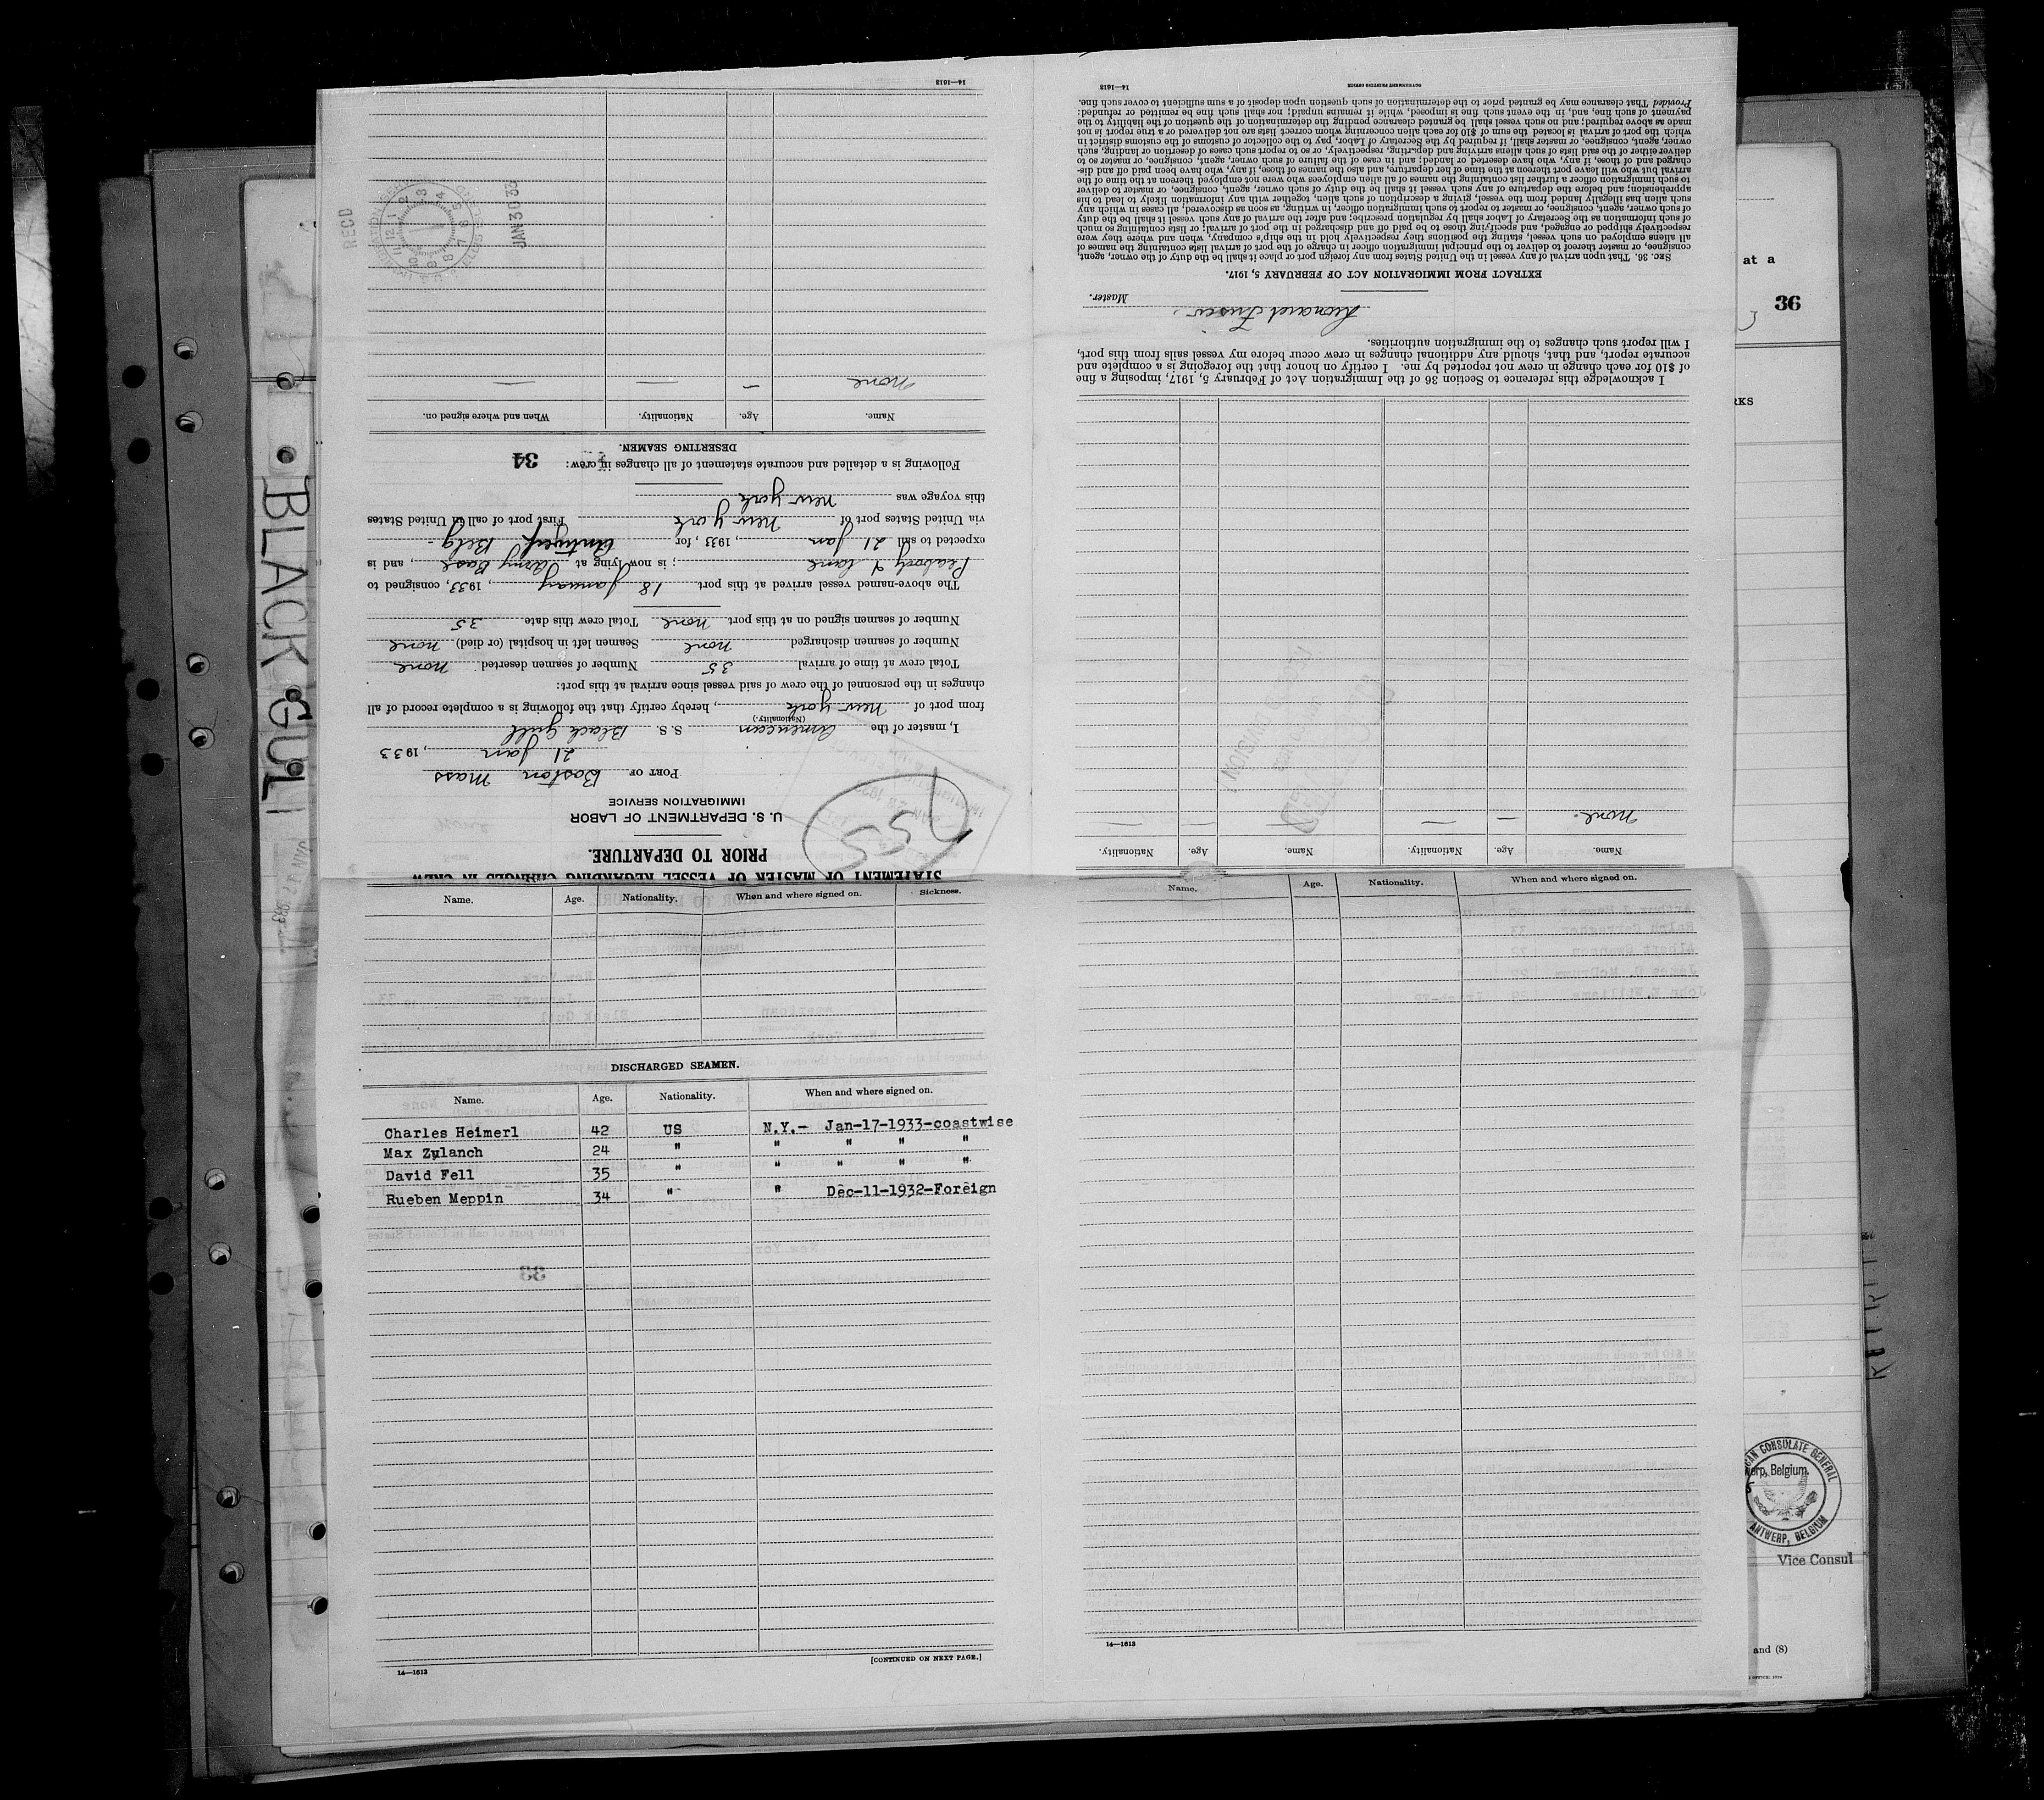 STATEMENT OF MASTER OF VESSEL REGARDING CHANGES IN CREW
PRIOR TO DEPARTURE.
U. S. DEPARTMENT OF LABOR
IMMIGRATION SERVICE
PORT OF Boston Mass
21 Jan, 1933
I, master of the American S. S. Black Gull
(Nationality.)
from port of New York, hereby certify that the following is a complete record of all
changes in the personnel of the crew of said vessel since arrival at this port:
Total crew at time of arrival 35 Number of seamen deserted none
Number of seamen discharged none Seamen left in hospital (or died) none
Number of seamen signed on at this port none Total crew this date 35
The above-named vessel arrived at this port 18 January, 1933, consigned to
Peabody & Lane; is now lying at Army Base, and is
expected to sail 21 Jan, 1933, for Antwerp Belg
via United States port of New York First port of call in United States
this voyage was New York
Following is a detailed and accurate statement of all changes in crew: 34
DESERTING SEAMEN.
Name. Age. Nationality. When and where signed on.
none — — —
REC'D
JAN 30 33
14—1613
Name. Age. Nationality. Name. Age. Nationality.
none — — — — —
I acknowledge this reference to Section 36 of the Immigration Act of February 5, 1917, imposing a fine
of $10 for each change in crew not reported by me. I certify on honor that the foregoing is a complete and
accurate report, and that, should any additional changes in crew occur before my vessel sails from this port,
I will report such changes to the immigration authorities.
Master.
EXTRACT FROM IMMIGRATION ACT OF FEBRUARY 5, 1917.
SEC. 36. That upon arrival of any vessel in the United States from any foreign port or place it shall be the duty of the owner, agent,
consignee, or master thereof to deliver to the principal immigration officer in charge of the port of arrival lists containing the names of
all aliens employed on such vessel, stating the positions they respectively hold in the ship's company, when and where they were
respectively shipped or engaged, and specifying those to be paid off and discharged in the port of arrival; or lists containing so much
of such information as the Secretary of Labor shall by regulation prescribe; and after the arrival of any such vessel it shall be the duty
of such owner, agent, consignee, or master to report to such immigration officer, in writing, as soon as discovered, all cases in which any
such alien has illegally landed from the vessel, giving a description of such alien, together with any information likely to lead to his
apprehension; and before the departure of any such vessel it shall be the duty of such owner, agent, consignee, or master to deliver
to such immigration officer a further list containing the names of all alien employees who were not employed thereon at the time of the
arrival but who will leave port thereon at the time of her departure, and also the names of those, if any, who have been paid off and dis-
charged and of those, if any, who have deserted or landed; and in case of the failure of such owner, agent, consignee, or master so to
deliver either of the said lists of such aliens arriving and departing, respectively, or so to report such cases of desertion or landing, such
owner, agent, consignee, or master shall, if required by the Secretary of Labor, pay to the collector of customs of the customs district in
which the port of arrival is located the sum of $10 for each alien concerning whom correct lists are not delivered or a true report is not
made as above required; and no such vessel shall be granted clearance pending the determination of the question of the liability to the
payment of such fine, and, in the event such fine is imposed, while it remains unpaid; nor shall such fine be remitted or refunded:
Provided That clearance may be granted prior to the determination of such question upon deposit of a sum sufficient to cover such fine.
14—1613 GOVERNMENT PRINTING OFFICE
Name. Age. Nationality. When and where signed on. Sickness.
DISCHARGED SEAMEN.
Name. Age. Nationality. When and where signed on.
Charles Heimerl 42 US N.Y.- Jan-17-1933-coastwise
Max Zylanch 24 " " " " "
David Fell 35 " " " " "
Rueben Meppin 34 " " Dec-11-1932-Foreign
[CONTINUED ON NEXT PAGE.]
14—1613
Name. Age. Nationality. When and where signed on.
14—1613
BLACK GULL
at a
36
RKS
AN CONSULATE GENERAL
erp, Belgium.
ANTWERP, BELGIUM
Vice Consul
and (8)